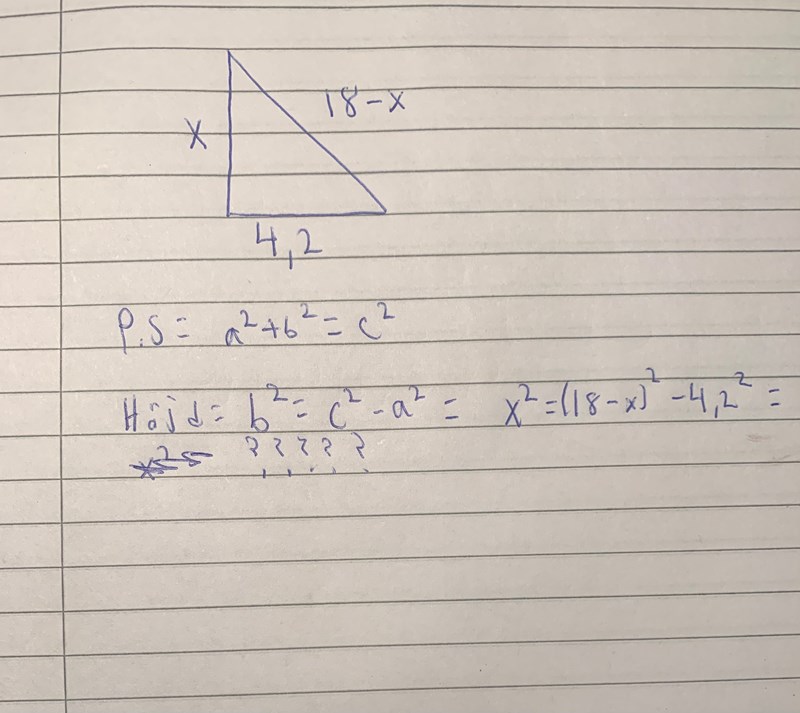 18-x
x
4,2
P.S = a²+b² = c²
Höjd = b² = c² - a² = x² = (18-x)² - 4,2² =
x² = ? ? ? ? ?